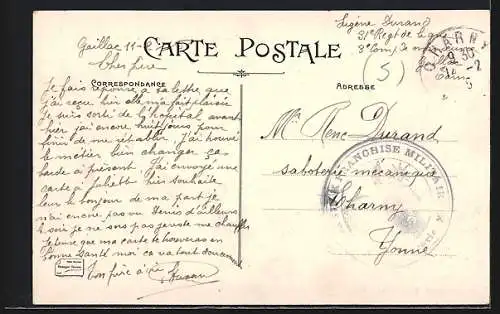 Gaillac 11-
CARTE POSTALE
Cher frère
CORRESPONDANCE
Je fais réponse à ta lettre que
j'ai reçue hier elle m'a fait plaisir
Je suis sorti de l'hôpital avant
hier j'ai encore huit jours pour
finir de me rétablir J'ai trouvé
le métier bien changer ça
barde à présent. J'ai envoyé une
carte à Juliette hier souhaite
leur le bonjour de ma part je
n'ai encore pas vu Denis d'ailleurs
le soir je ne sors pas je reste me chauffer
Je pense que ma carte te trouvera en
bonne Santé moi ca va tout doucement
Ton frère
Eugène Durand
3e Com
ADRESSE
(5)
Mr René Durand
saboterie mécanique
Charny
Yonne
CHARNY
FRANCHISE MILITAIRE